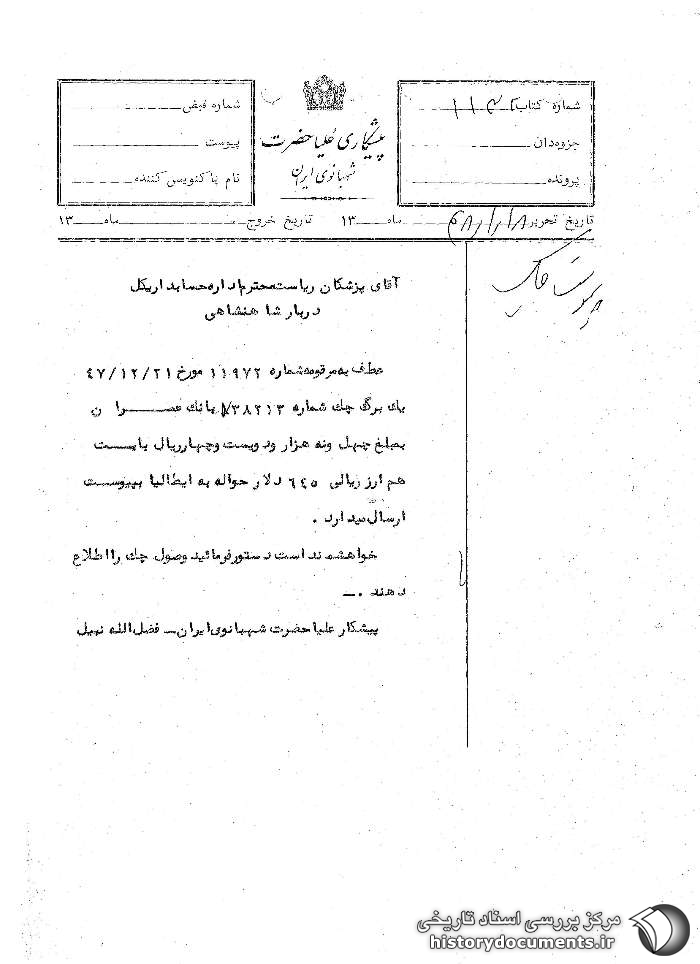 شماره کتاب
جزوه‌دان
پرونده
پیشکاری علیا حضرت
شهبانوی ایران
شماره قبض
پیوست
نام پاکنویس کننده
تاریخ تحریر ماه ۱۳ تاریخ خروج ماه ۱۳
پیوست چک
آقای پزشکان ریاست محترم اداره حسابداری کل
دربار شاهنشاهی
عطف به مرقومه شماره ۱۱۹۷۲ مورخ ۴۷/۱۲/۲۱
یک برگ چک شماره بانک عمران
بمبلغ چهل ونه هزار ودویست وچهارریال بابست
هم ارز ریالی ۶۴۵ دلار حواله به ایطالیا بپیوست
ارسال میدارد .
خواهشمند است دستور فرمائید وصول چک را اطلاع
دهند .ــ
پیشکار علیا حضرت شهبانوی ایران ــ فضل‌الله نبیل
مرکز بررسی اسناد تاریخی
historydocuments.ir